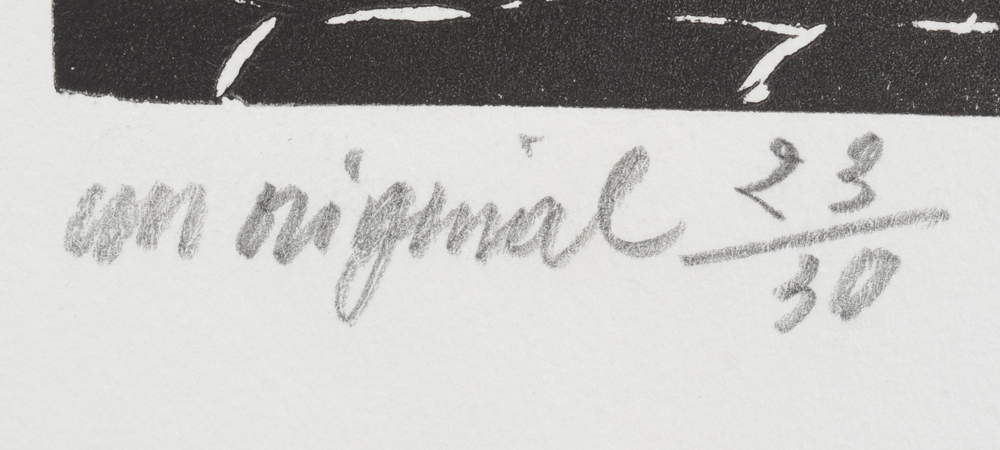 original 23/30